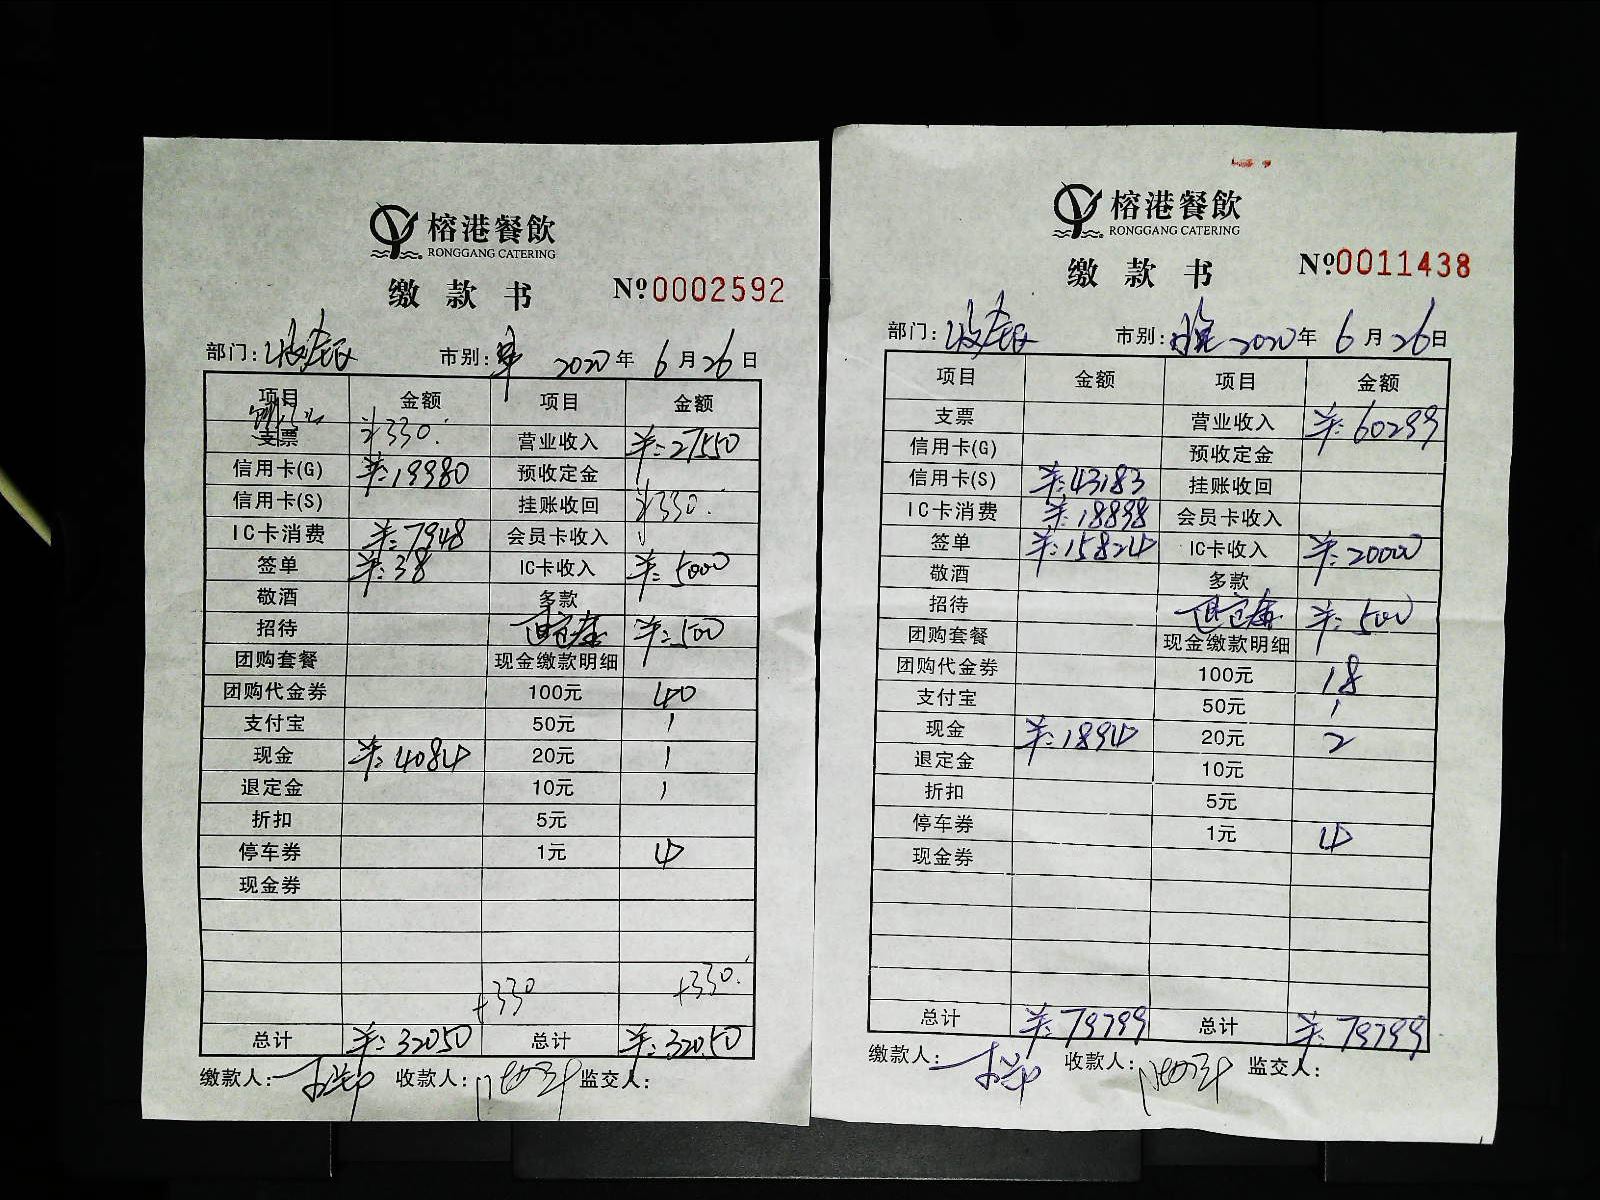 榕港餐飲
RONGGANG CATERING
缴款书
№0002592
部门: 市别: 2020年 6月26日
项目 金额 项目 金额
支票 330. 营业收入 ¥:27550
信用卡(G) ¥:19980 预收定金
信用卡(S) 挂账收回 330.
IC卡消费 ¥:7948 会员卡收入
签单 ¥:38 IC卡收入 ¥:5000
敬酒 多款
招待 退定金 ¥:500
团购套餐 现金缴款明细
团购代金券 100元 40
支付宝 50元 1
现金 ¥:4084 20元 1
退定金 10元 1
折扣 5元
停车券 1元 4
现金券
+330 +330.
总计 ¥:32050 总计 ¥:32050
缴款人: 收款人: 监交人:
榕港餐飲
RONGGANG CATERING
缴款书
№0011438
部门: 市别:晚 2020年 6月26日
项目 金额 项目 金额
支票 营业收入 ¥:60299
信用卡(G) 预收定金
信用卡(S) ¥:43183 挂账收回
IC卡消费 ¥:18898 会员卡收入
签单 ¥:15824 IC卡收入 ¥:20000
敬酒 多款
招待 退定金 ¥:500
团购套餐 现金缴款明细
团购代金券 100元 18
支付宝 50元 1
现金 ¥:1894 20元 2
退定金 10元
折扣 5元
停车券 1元 4
现金券
总计 ¥:79799 总计 ¥:79799
缴款人: 收款人: 监交人: